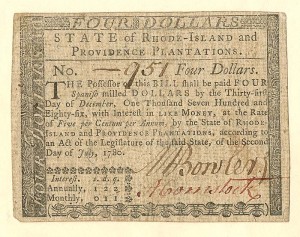 FOUR DOLLARS.
STATE of RHODE-ISLAND and
PROVIDENCE PLANTATIONS.
No. 951 Four Dollars.
THE Possessor of this BILL shall be paid FOUR
Spanish milled DOLLARS by the Thirty-first
Day of December, One Thousand Seven Hundred and
Eighty-six, with Interest in LIKE MONEY, at the Rate
of Five per Centum per Annum, by the State of RHODE-
ISLAND and PROVIDENCE PLANTATIONS, according to
an Act of the Legislature of the said State, of the Second
Day of July, 1780.
Bowler
Interest. s. d. q.
Annually,
Monthly,
FOUR DOLLARS